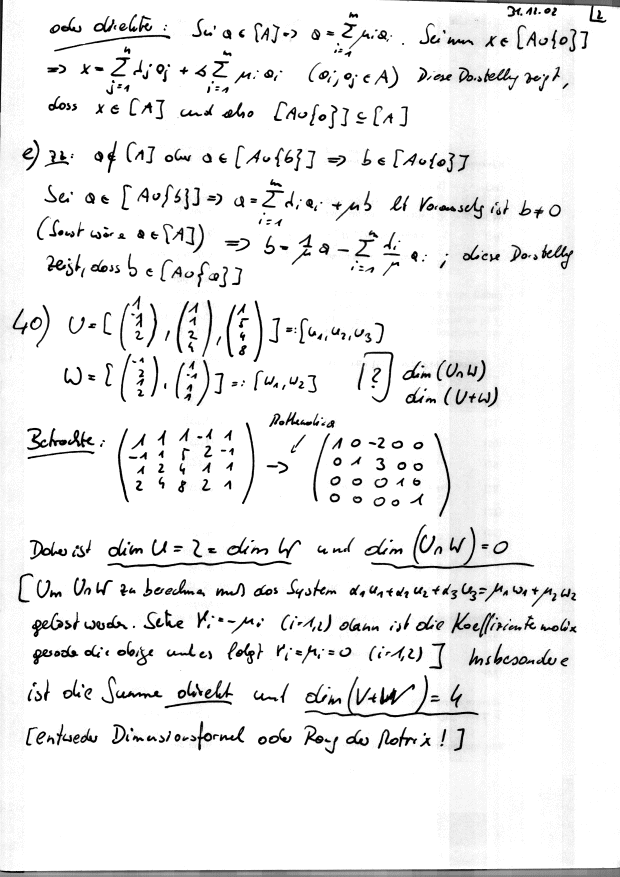 31.12.02 2
oder direkte: Sei a ∈ [A] => a = Σ_{i=1}^{m} μ_i a_i . Sei nun x ∈ [A∪{a}]
=> x = Σ_{j=1}^{n} λ_j a_j + λ Σ_{i=1}^{m} μ_i a_i (a_i, a_j ∈ A) Diese Darstellg zeigt,
dass x ∈ [A] und also [A∪{a}] ⊆ [A]
e) zz: a ∉ [A] aber a ∈ [A∪{b}] => b ∈ [A∪{a}]
Sei a ∈ [A∪{b}] => a = Σ_{i=1}^{m} λ_i a_i + μb lt Voraussetzg ist b ≠ 0
(Sonst wäre a ∈ [A]) => b = 1/μ a - Σ_{i=1}^{m} λ_i/μ a_i ; diese Darstellg
zeigt, dass b ∈ [A∪{a}]
40) U = [ (1 -1 1 2), (1 1 2 4), (1 5 4 8) ] =: [u1, u2, u3]
W = [ (-1 2 1 2), (1 -1 1 1) ] =: [w1, w2] [?] dim (U∩W)
dim (U+W)
Mathematica
Betrachte: ( 1 1 1 -1 1 / -1 1 5 2 -1 / 1 2 4 1 1 / 2 4 8 2 1 ) -> ( 1 0 -2 0 0 / 0 1 3 0 0 / 0 0 0 1 0 / 0 0 0 0 1 )
Daher ist dim U = 2 = dim W und dim (U∩W) = 0
[Um U∩W zu berechnen muß das System α1u1+α2u2+α3u3 = μ1w1+μ2w2
gelöst werden. Setze γi = -μi (i=1,2) dann ist die Koeffizientematix
gerade die obige und es folgt γi = μi = 0 (i=1,2) ] Insbesondere
ist die Summe direkt und dim (V+W) = 4
[entweder Dimensionsformel oder Rang der Matrix ! ]